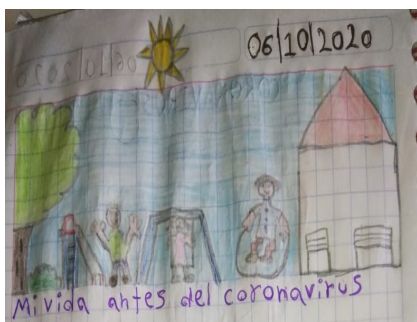 06|10|2020
Mi vida antes del coronavirus